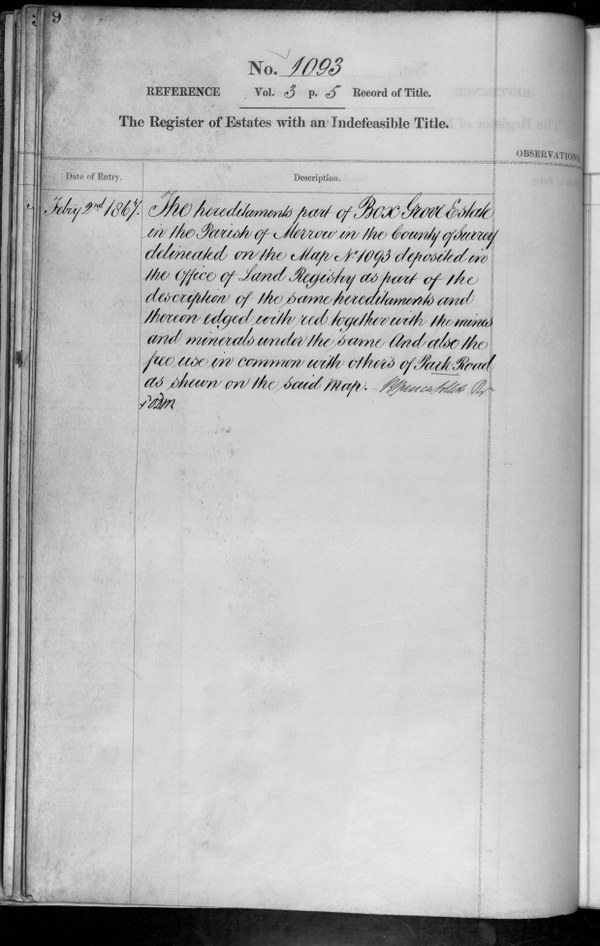 9
No. 1093
REFERENCE Vol. 3 p. 5 Record of Title.
The Register of Estates with an Indefeasible Title.
OBSERVATIONS
Date of Entry.
Description.
Febry 2nd 1867.
The hereditaments part of Box Grove Estate
in the Parish of Merrow in the County of Surrey
delineated on the Map No 1093 deposited in
the Office of Land Registry as part of the
description of the same hereditaments and
thereon edged with red together with the mines
and minerals under the same And also the
free use in common with others of Park Road
as shewn on the said Map.